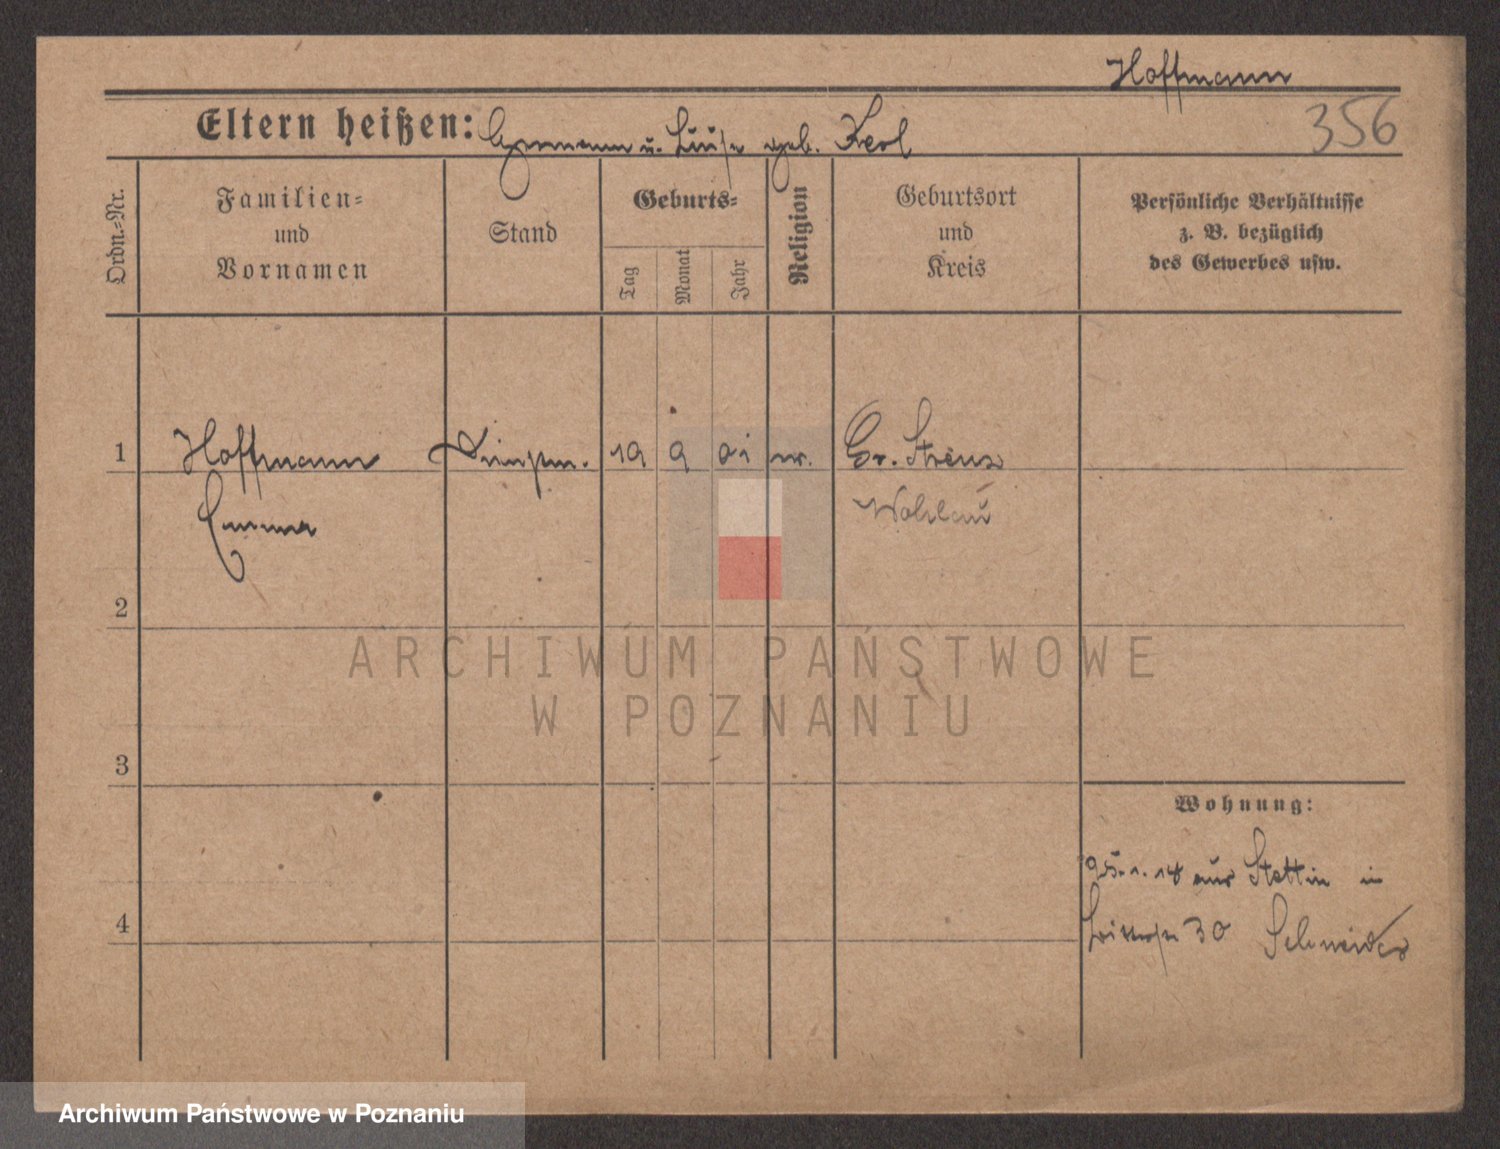 Hoffmann
356
Eltern heißen: Hermann u. Luise geb. Kerl
Ordn.-Nr.
Familien- und Vornamen
Stand
Geburts-
Tag
Monat
Jahr
Religion
Geburtsort und Kreis
Persönliche Verhältnisse
z. B. bezüglich
des Gewerbes usw.
1 Hoffmann 19 9 01 ev. Gr. Strenz
Emma Wohlau
2
3
4
Wohnung:
aus Stettin in
30 Schneider
ARCHIWUM PAŃSTWOWE
W POZNANIU
Archiwum Państwowe w Poznaniu